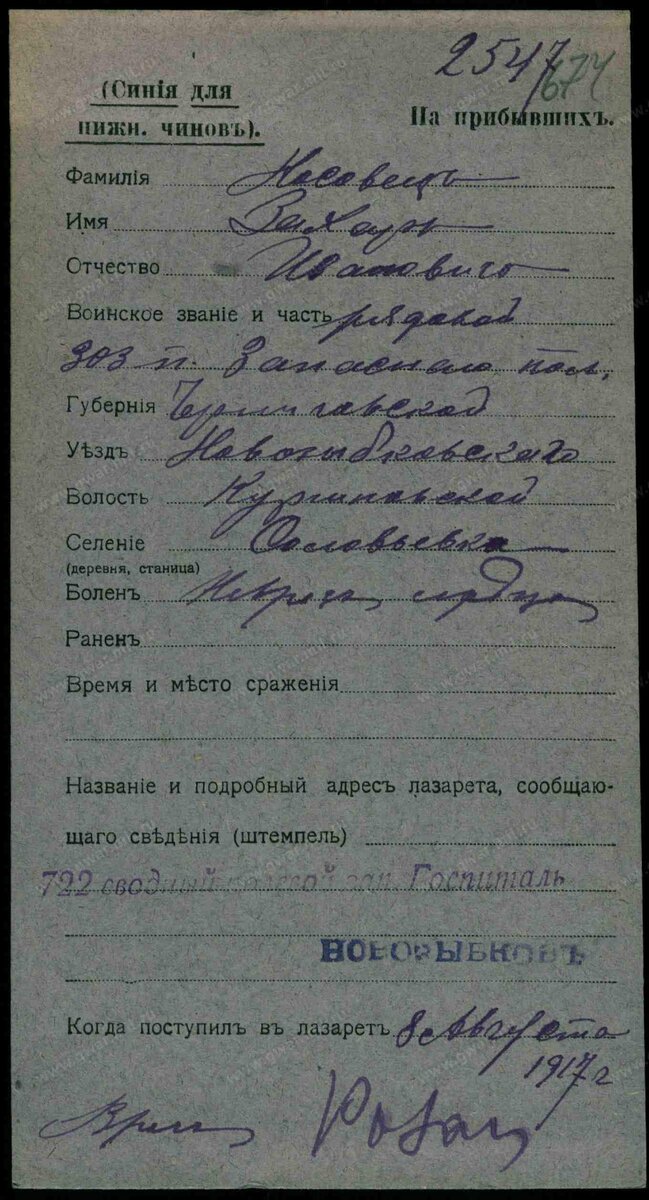 2547
674
(Синія для
нижн. чиновъ).
На прибывшихъ.
Фамилія Носовецъ
Имя Захаръ
Отчество Ивановичъ
Воинское званіе и часть рядовой
303 п. Запаснаго пол.
Губернія Черниговской
Уѣздъ Новозыбковскаго
Волость
Селеніе Соловьевка
(деревня, станица)
Боленъ сердца
Раненъ
Время и мѣсто сраженія
Названіе и подробный адресъ лазарета, сообщаю-
щаго свѣдѣнія (штемпель)
722 сводный полевой зап. Госпиталь
НОВОЗЫБКОВЪ
Когда поступилъ въ лазаретъ 8 Августа
1917 г
Врач